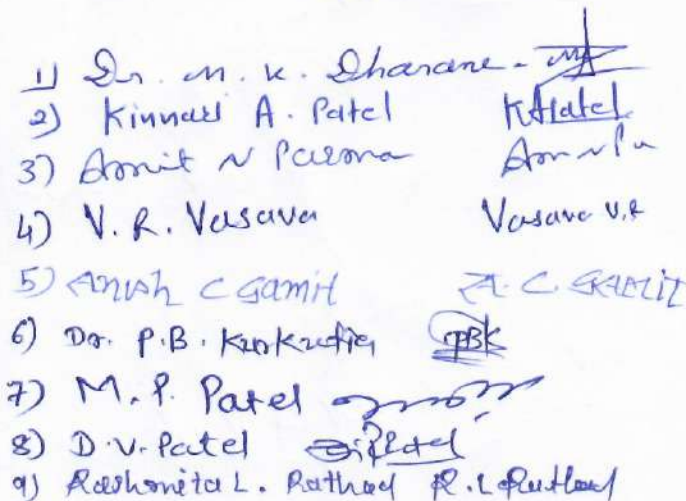 1) Dr. M. K. Dharane -
2) Kinnari A. Patel KAPatel
3) Amit N Parma
4) V. R. Vasava Vasava V.R
5) Anish C Gamit A. C. GAMIT
6) Dr. P.B. PBK
7) M. P. Patel
8) D.V. Patel
9) Rashmita L. Rathod R. L Rathod